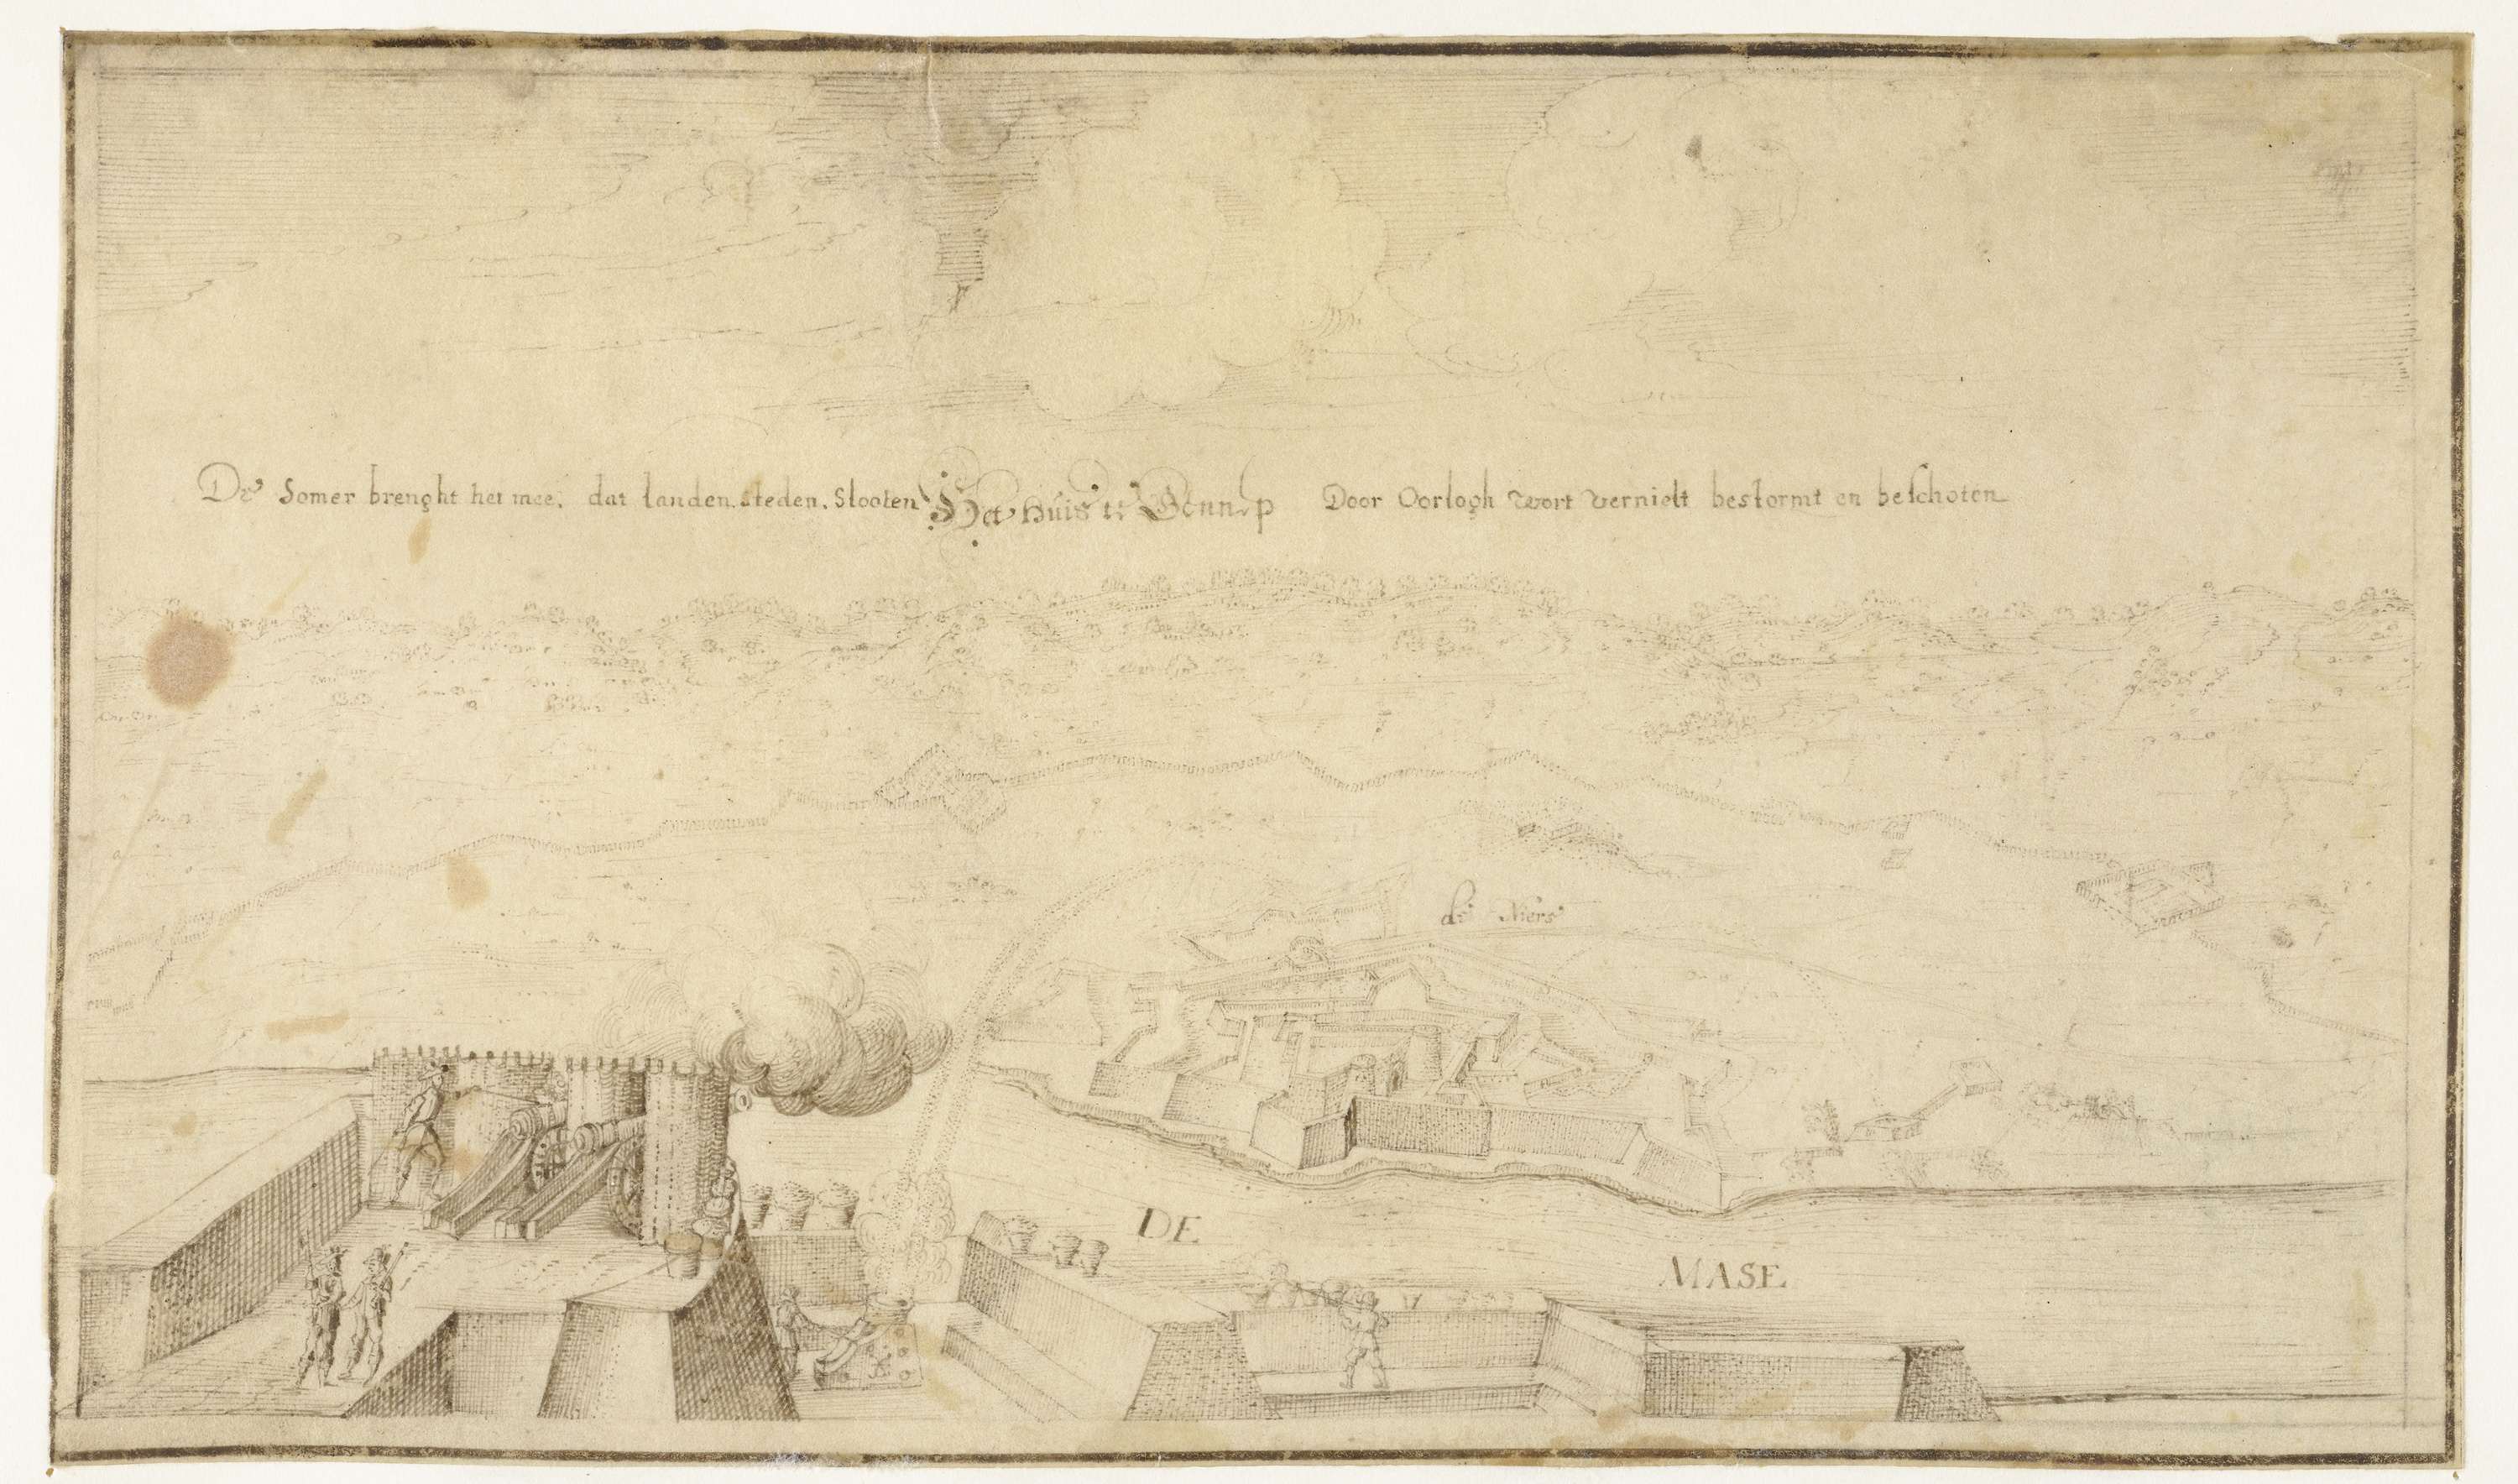 De Somer brenght het mee, dat landen, steden, Slooten Het Huis te Gennep Door Oorlogh wort vernielt bestormt en beschoten
de Niers
DE
MASE